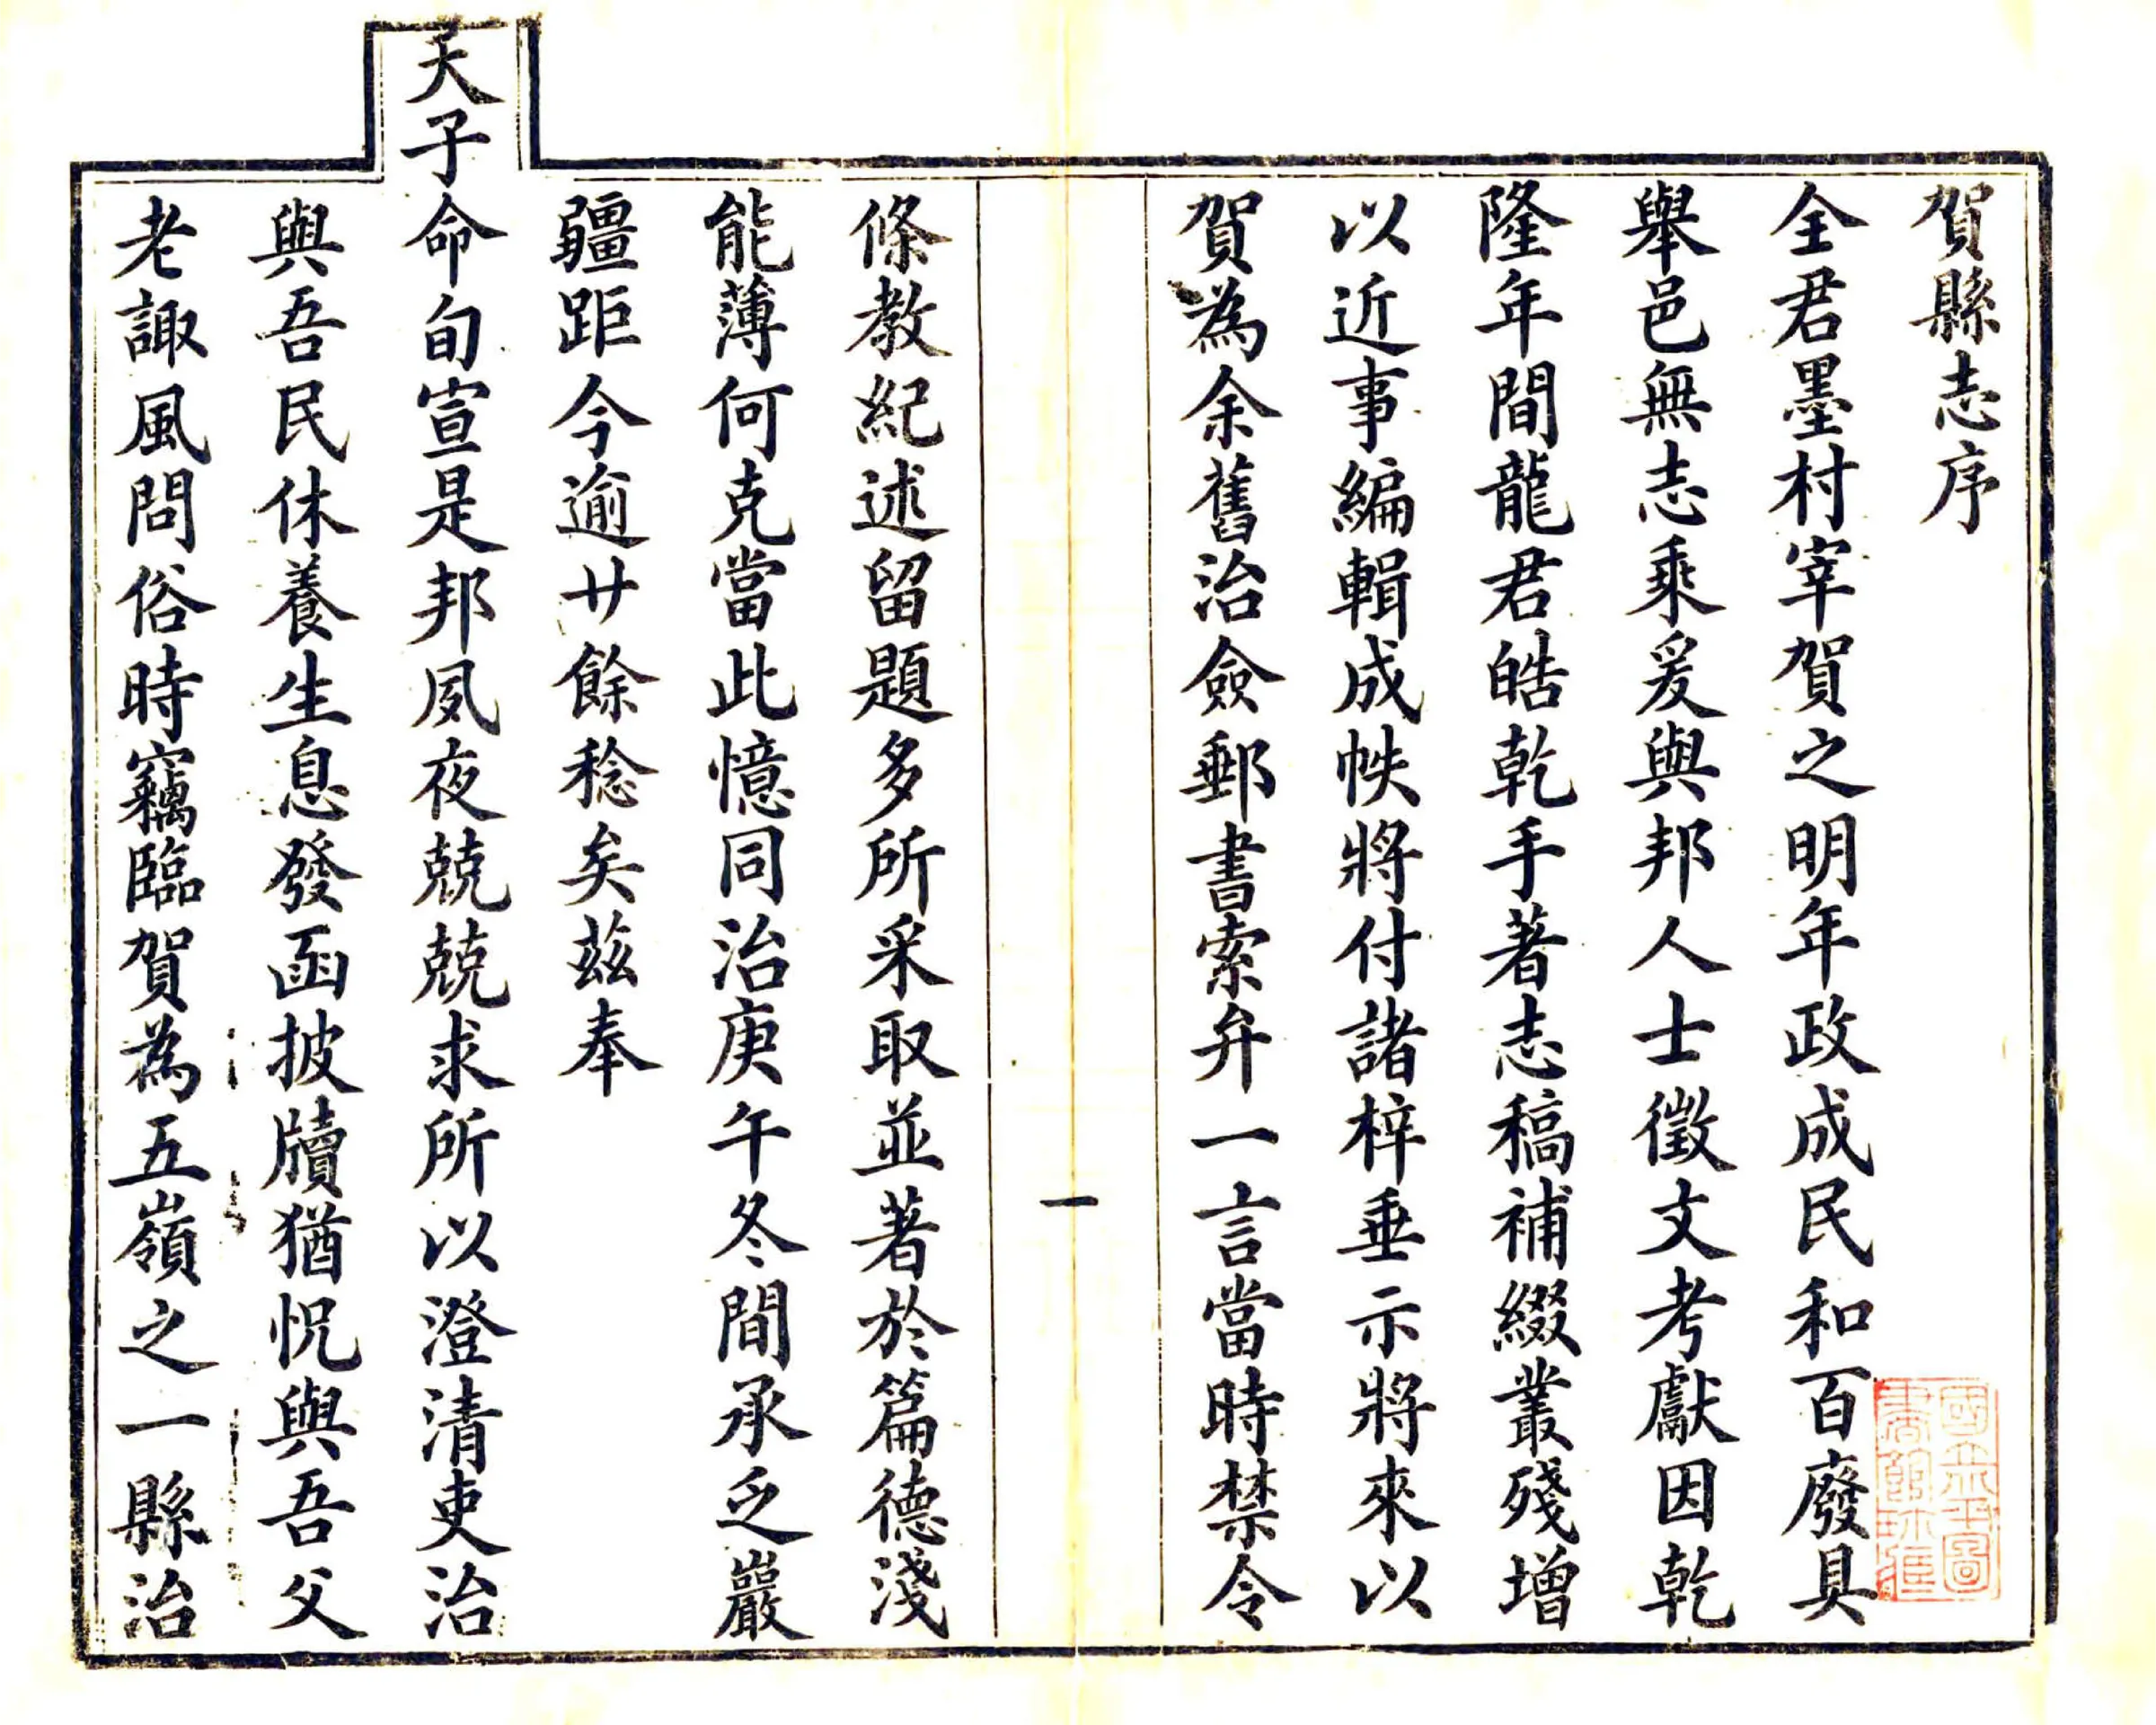 賀縣志序
全君墨村宰賀之明年政成民和百廢具
舉邑無志乘爰與邦人士徵文考獻因乾
隆年間龍君皓乾手著志稿補綴叢殘增
以近事編輯成帙將付諸梓垂示將來以
賀為余舊治僉郵書索弁一言當時禁令
一
條教紀述留題多所采取並著於篇德淺
能薄何克當此憶同治庚午冬間承乏嚴
疆距今逾廿餘稔矣茲奉
天子命旬宣是邦夙夜兢兢求所以澄清吏治
與吾民休養生息發函披牘猶怳與吾父
老諏風問俗時竊臨賀為五嶺之一縣治
國立北平圖
書館珍藏